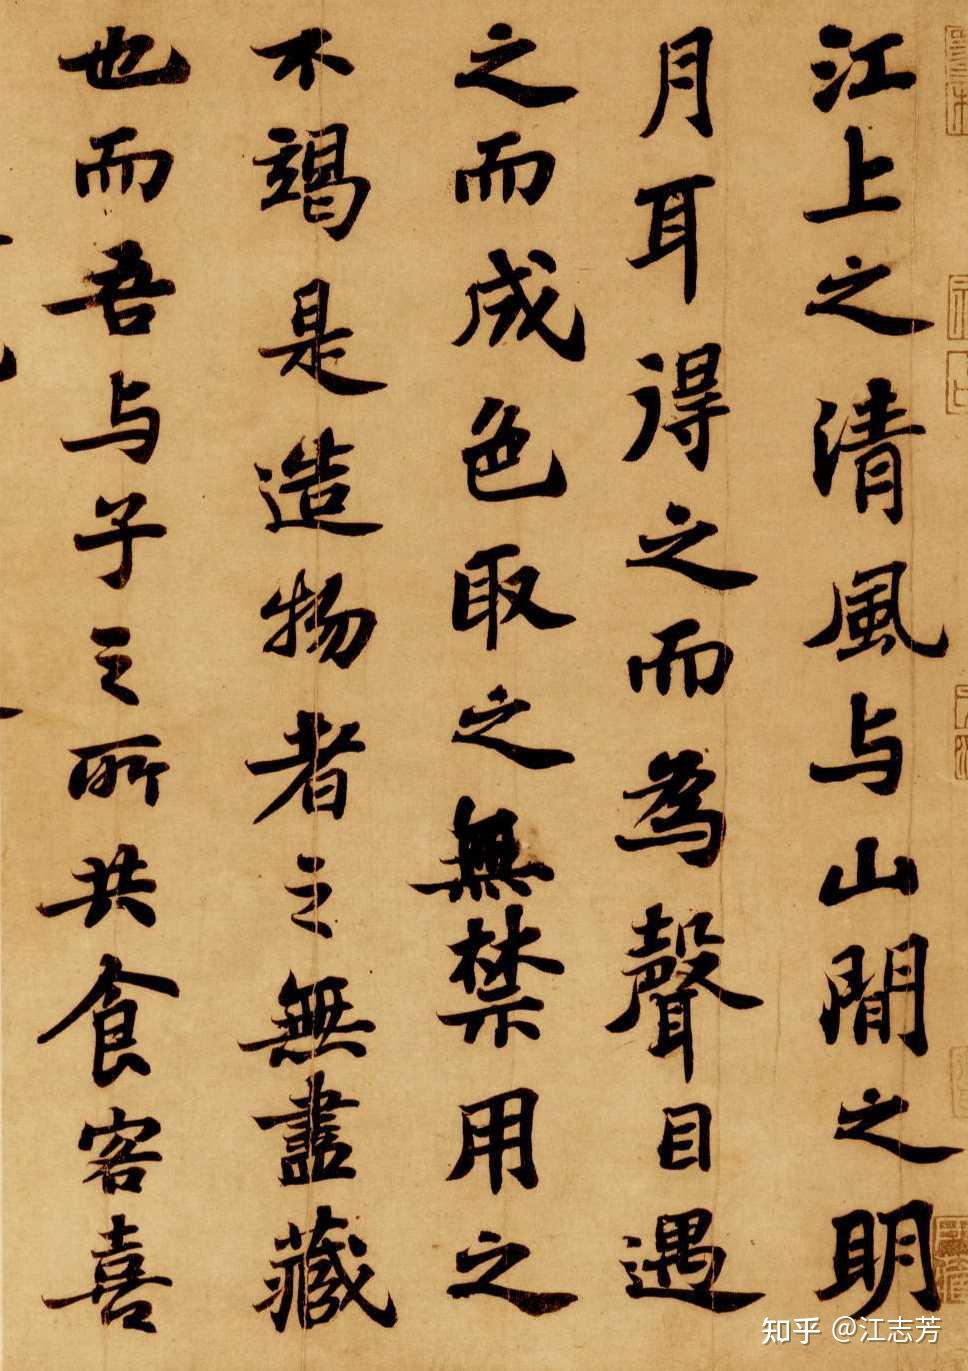 江上之清風与山間之明
月耳得之而為聲目遇
之而成色取之無禁用之
不竭是造物者之無盡藏
也而吾与子之所共食客喜
知乎 @江志芳